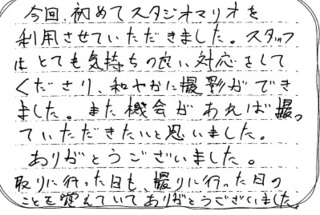 今回、初めてスタジオマリオを
利用させていただきました。スタッフ
はとても気持ちの良い対応をして
くださり、和やかに撮影ができ
ました。また機会があれば撮っ
ていただきたいと思いました。
ありがとうございました。
取りに行った日も、撮りに行った日の
ことを覚えていてありがとうございました。